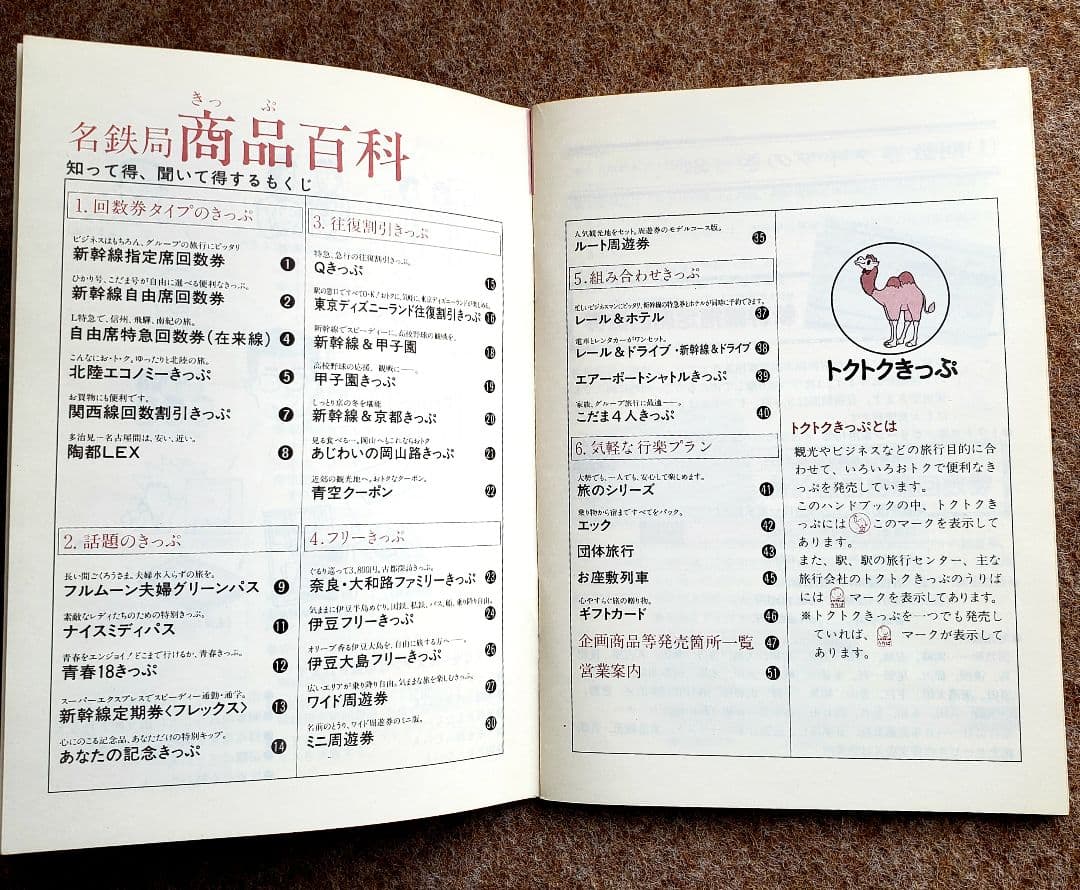 きっぷ
名鉄局商品百科
知って得、聞いて得するもくじ
1. 回数券タイプのきっぷ
ビジネスはもちろん、グループの旅行にピッタリ
新幹線指定席回数券 1
ひかり号、こだま号が自由に選べる便利なきっぷ。
新幹線自由席回数券 2
L特急で、信州、飛騨、南紀の旅。
自由席特急回数券(在来線) 4
こんなにお・トク。ゆったりと北陸の旅。
北陸エコノミーきっぷ 5
お買物にも便利です。
関西線回数割引きっぷ 7
多治見−名古屋間は、安い、近い。
陶都LEX 8
2. 話題のきっぷ
長い間ごくろうさま。夫婦水入らずの旅を。
フルムーン夫婦グリーンパス 9
素敵なレディたちのための特別きっぷ。
ナイスミディパス 11
青春をエンジョイ!どこまで行けるか、青春きっぷ。
青春18きっぷ 12
スーパーエクスプレスでスピーディー通勤・通学。
新幹線定期券〈フレックス〉 13
心にのこる記念品、あなただけの特別キップ。
あなたの記念きっぷ 14
3. 往復割引きっぷ
特急、急行の往復割引きっぷ。
Qきっぷ 15
駅の窓口ですべてO・K!おトクに、気軽に、東京ディズニーランドが楽しめる。
東京ディズニーランド往復割引きっぷ 16
新幹線でスピーディーに、高校野球の観戦を。
新幹線&甲子園 18
高校野球の応援、観戦に──。
甲子園きっぷ 19
しっとり京の冬を堪能
新幹線&京都きっぷ 20
見る食べる─。岡山へもこれならおトク
あじわいの岡山路きっぷ 21
近郊の観光地へ。おトクなクーポン。
青空クーポン 22
4. フリーきっぷ
ぐるり巡って3,800円。古都探訪きっぷ。
奈良・大和路ファミリーきっぷ 23
気ままに伊豆半島めぐり。国鉄、私鉄、バス、船、乗り降り自由。
伊豆フリーきっぷ 24
オリーブ香る伊豆大島を、自由に旅する方へ──。
伊豆大島フリーきっぷ 26
広いエリアが乗り降り自由。気ままな旅を楽しむきっぷ。
ワイド周遊券 27
名前のとうり、ワイド周遊券のミニ版。
ミニ周遊券 30
人気観光地をセット。周遊券のモデルコース版。
ルート周遊券 35
5. 組み合わせきっぷ
忙しいビジネスマンにピッタリ。新幹線の特急券とホテルが同時に予約できます。
レール&ホテル 37
電車とレンタカーがワンセット。
レール&ドライブ・新幹線&ドライブ 38
エアーポートシャトルきっぷ 39
家族、グループ旅行に最適──。
こだま4人きっぷ 40
6. 気軽な行楽プラン
大勢でも、一人でも、安心して楽しめます。
旅のシリーズ 41
乗り物から宿まですべてをパック。
エック 42
団体旅行 43
お座敷列車 45
心やすらぐ旅の贈り物。
ギフトカード 46
企画商品等発売箇所一覧 47
営業案内 51
トクトクきっぷ
トクトクきっぷとは
観光やビジネスなどの旅行目的に合
わせて、いろいろおトクで便利なき
っぷを発売しています。
このハンドブックの中、トクトクき
っぷには このマークを表示して
あります。
また、駅、駅の旅行センター、主な
旅行会社のトクトクきっぷのうりば
には マークを表示してあります。
※トクトクきっぷを一つでも発売し
ていれば、 マークが表示して
あります。